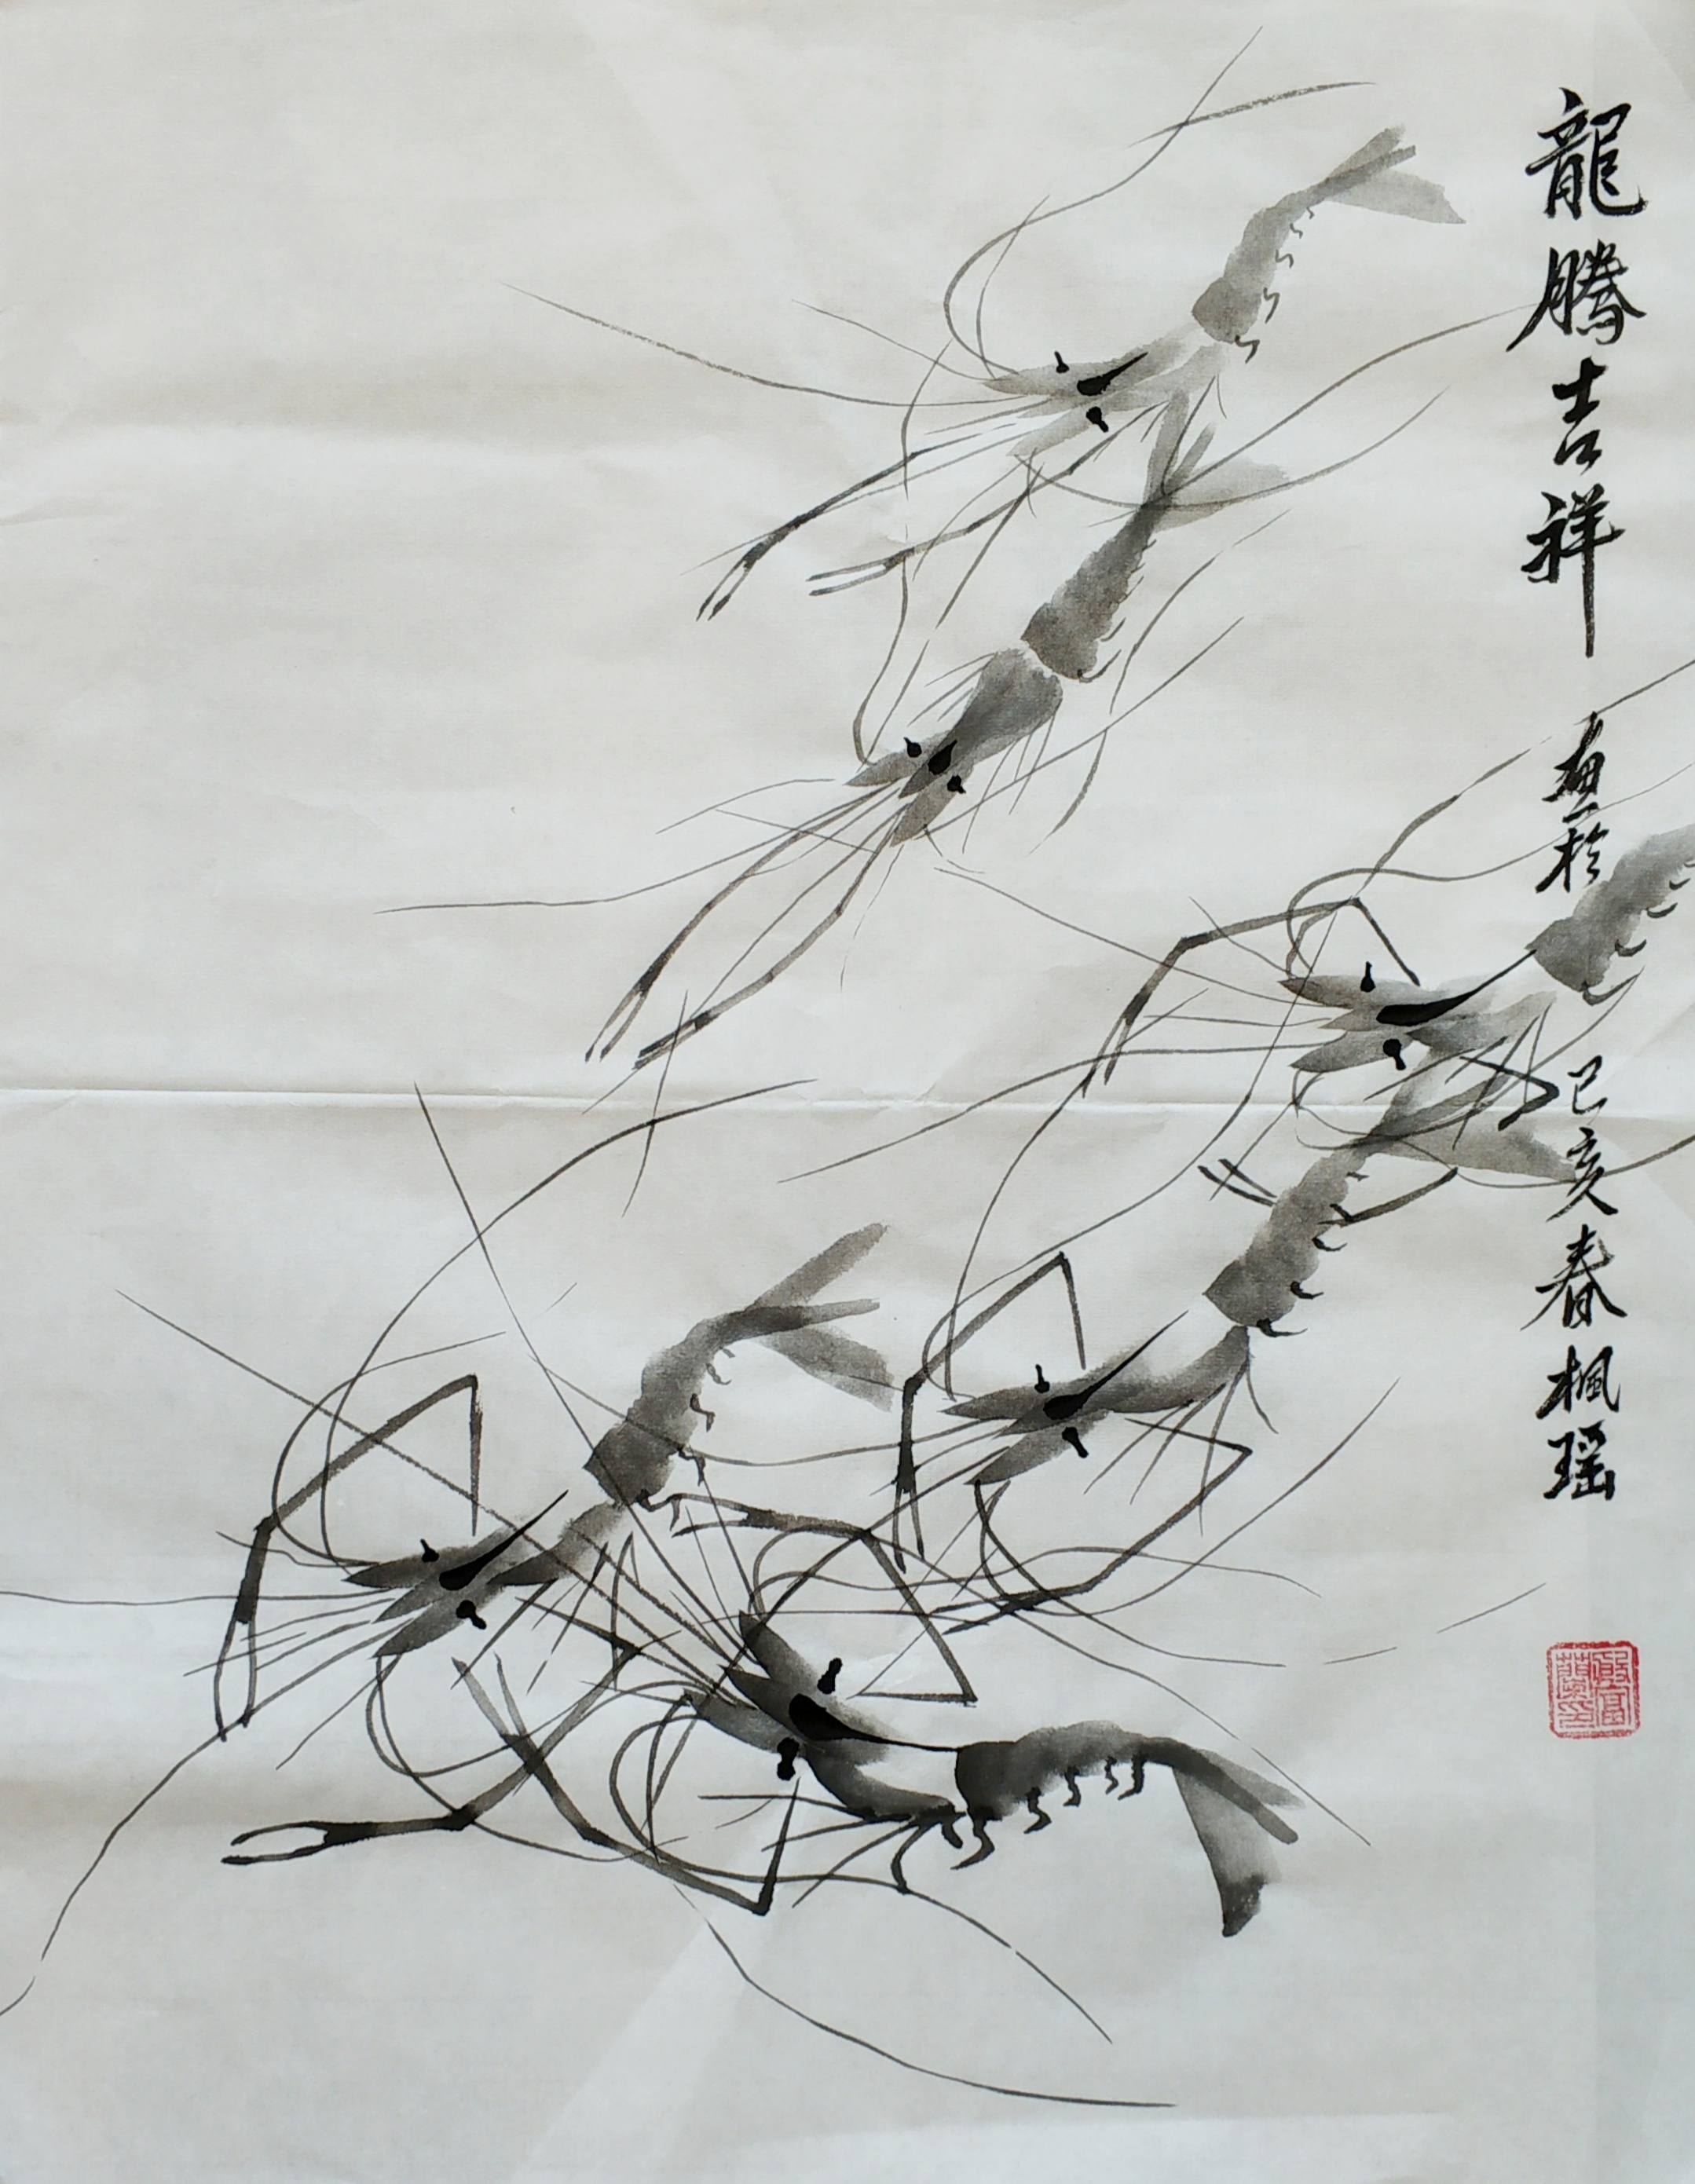 龍騰吉祥 畫於 己亥春 楓瑶